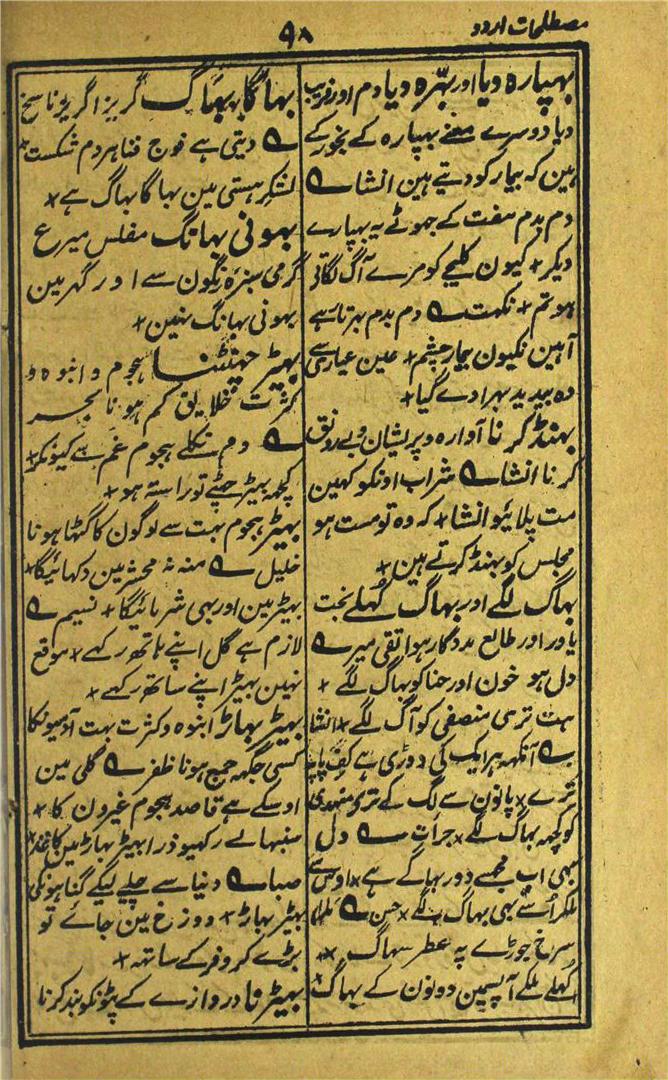 مصطلحات اردو
۹۸
بھپارہ دیا اور بہرّہ دیا دم اور فریب
دیا دوسرے معنے بہپارہ کے بخور کے
ہین کہ بیمار کو دیتے ہین انشا ؎
دم بدم مفت کے جھوٹے یہ بہپارے
دیکر + کیون کلیجے کو مرے آگ لگاتی
ہو تم + نکہت ؎ دم بدم بہرتا ہے
آہین نکیون بیمار چشم + عین عیاری سے
وہ بہرا دے گیا +
بہنڈ کرنا آوارہ و پریشان و بے رونق
کرنا انشا ؎ شراب اونکو کہین
مت پلائیو انشا + کہ وہ تو مست ہو
مجلس کو بہنڈ کرتے ہین +
بہاگ لگے اور بہاگ کُہلے بخت
یاور اور طالع مددگار ہوا تقی میر ؎
دل ہو خون اور حنا کو بہاگ لگے +
ہت تری منصفی کو آگ لگے + انشا
؎ آنکہہ ہر ایک کی دوڑی ہے کف پا پہ
ترے + پانون سے لگ کے تری منہدی
کو کچہہ بہاگ لگے + جرأت ؎ دل
بہی اب مجہسے دور بہاگے ہے + اوس سے
ملکر اسے بہی بہاگ لگے + حسن ؎
سرخ جوڑے پہ عطر سہاگ +
کُہلے ملکے آپسمین دونون کے بہاگ +
بہاگا بہاگ گریزا گریز ناسخ
؎ دیتی ہے فوج فنا ہر دم شکست
لشکر ہستی مین بہاگا بہاگ ہے +
بہونی بہانگ مفلس میر ع
گرمی سبزہ رنگون سے اور گہر مین
بہونی بہانگ نہین +
بہیڑ چہٹنا ہجوم و انبوہ و
کثرت خلایق کم ہونا بحر
؎ دم نکلے ہجوم غم ہے کیونکر +
کچہہ بہیڑ چہٹے تو راستہ ہو +
بہیڑ ہجوم بہت سے لوگون کا گٹہا ہونا
خلیل ؎ منہ نہ محشر مین دکہائیگا +
بہیڑ مین اور بہی شرمائیگا + نسیم ؎
لازم ہے گل اپنے ہاتھ رکہے + موقع
نہین بہیڑ اپنے ساتھ رکہے +
بہیڑ بہاڑ انبوہ و کثرت بہت آدمیونکا
کسی جگہہ جمع ہونا ظفر ؎ گلی مین
اوسکے ہے قاصد ہجوم غیرون کا +
سنبہالے رکہیو ذرا بہیڑ بہاڑ مین کاغذ +
صبا ؎ دنیا سے چلے لیکے گناہونکی
بہیڑ بہاڑ + دوزخ مین جائے تو
بڑے کروفر کے ساتہہ +
بہیڑنا دروازے کے پٹونکو بند کرنا